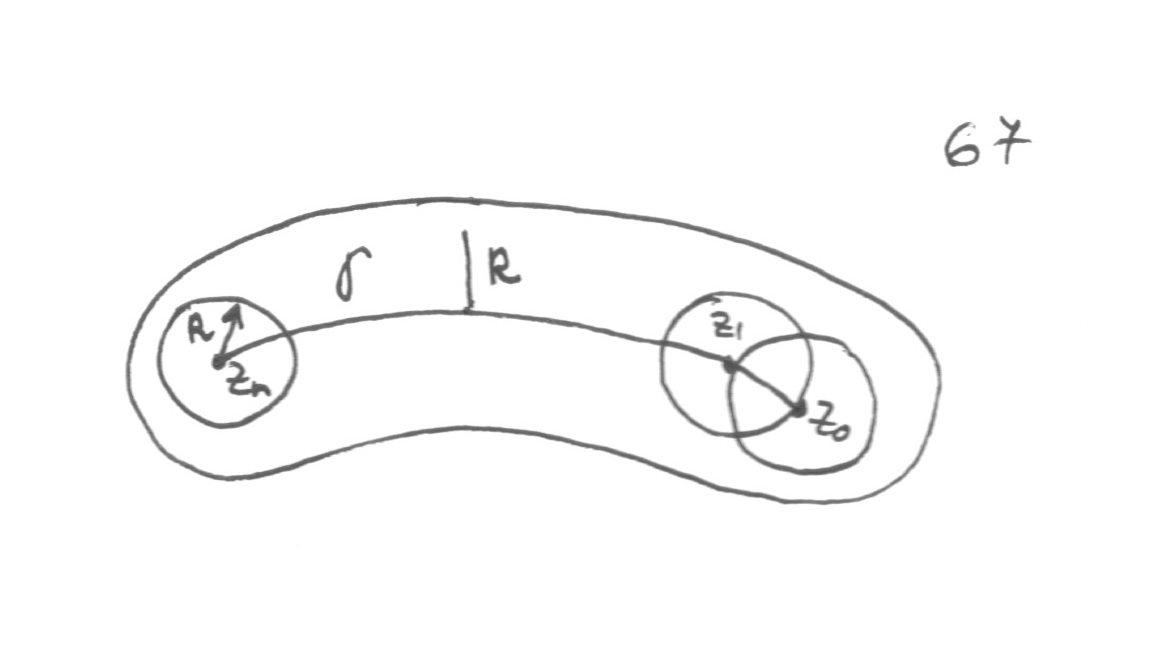 67
γ R
R
z₁
zₙ
z₀